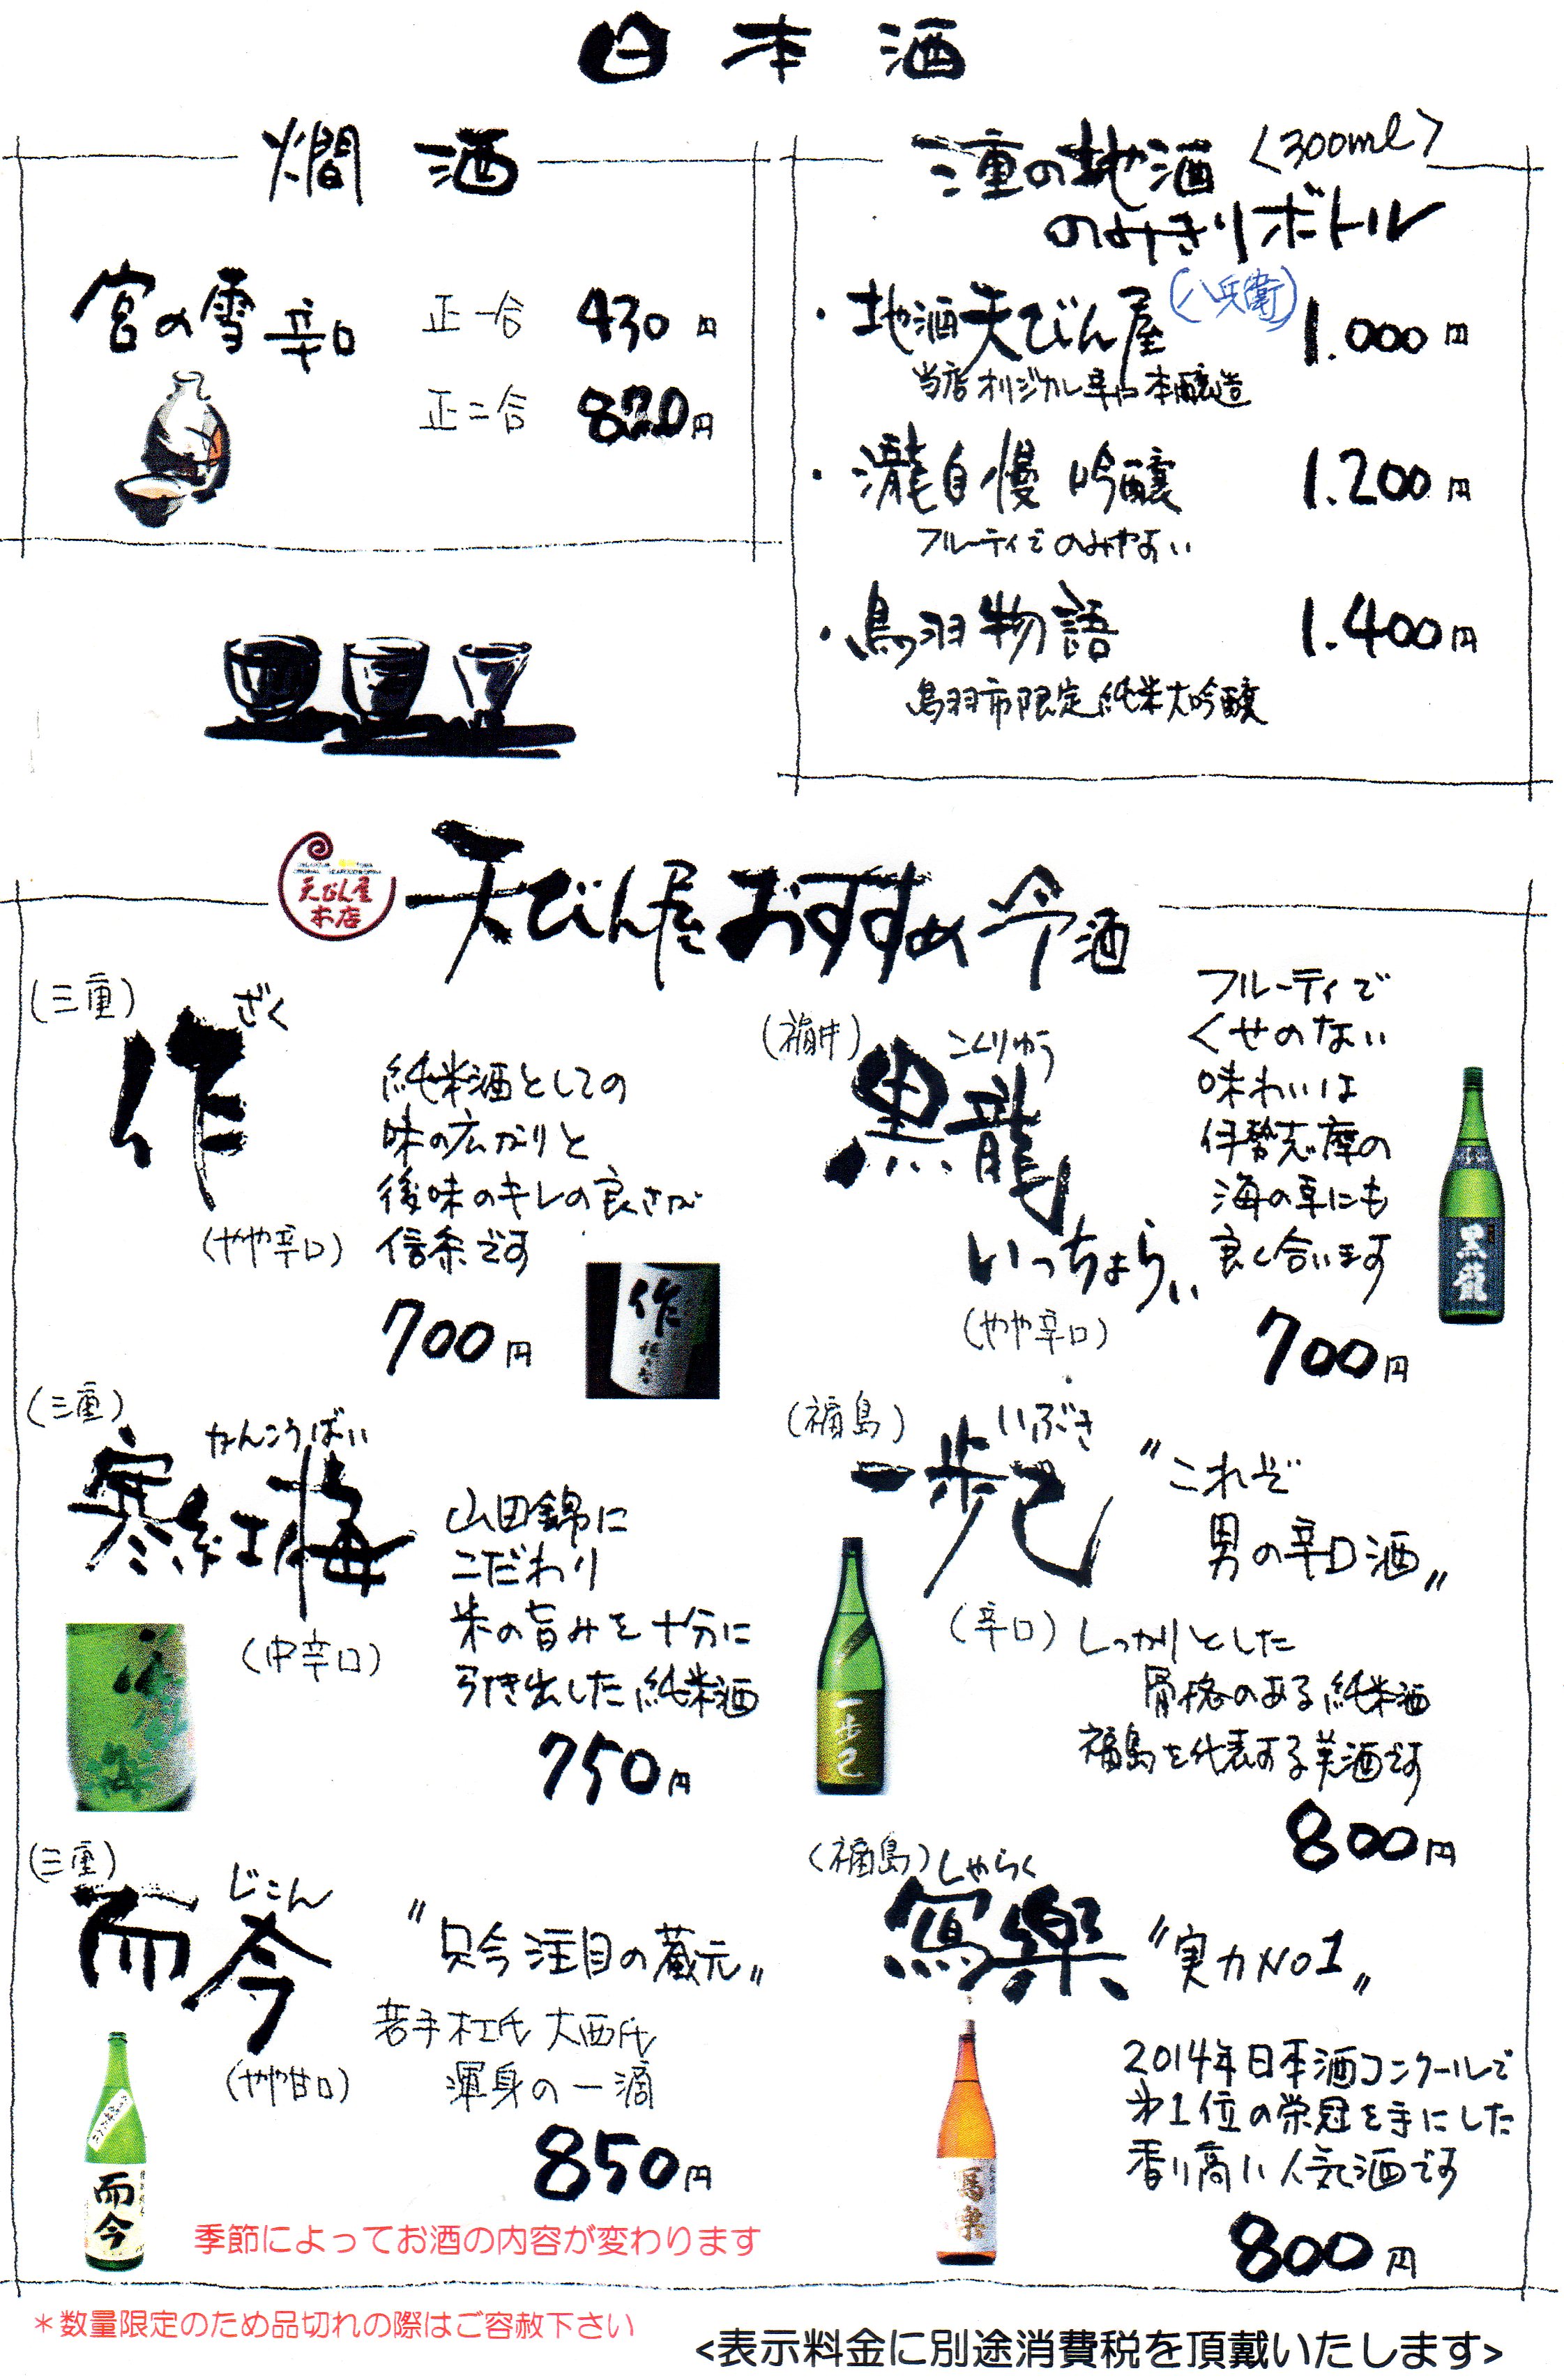 日本酒
燗酒
宮の雪 辛口 正一合 430円
正二合 820円
三重の地酒 <300ml>
のみきりボトル
・地酒天びん屋 (八兵衛) 1.000円
当店オリジナル辛口本醸造
・瀧自慢 吟醸 1.200円
フルーティでのみやすい
・鳥羽物語 1.400円
鳥羽市限定純米大吟醸
天びん屋
本店
天びん屋おすすめ冷酒
(三重)
ざく
作
(やや辛口)
純米酒としての
味の広がりと
後味のキレの良さが
信条です
700円
作
(福井)
こくりゅう
黒龍
いっちょらい
(やや辛口)
フルーティで
くせのない
味わいは
伊勢志摩の
海の幸にも
良く合います
700円
黒龍
(三重)
かんこうばい
寒紅梅
(中辛口)
山田錦に
こだわり
米の旨みを十分に
引き出した純米酒
750円
(福島)
いぶき
一歩己
(辛口)
"これぞ
男の辛口酒"
しっかりとした
骨格のある純米酒
福島を代表する美酒です
800円
一歩己
(三重)
じこん
而今
(やや甘口)
"只今注目の蔵元"
若手杜氏 大西氏
渾身の一滴
850円
而今
(福島)
しゃらく
寫樂
"実力NO1"
2014年日本酒コンクールで
第1位の栄冠を手にした
香り高い人気酒です
800円
寫樂
季節によってお酒の内容が変わります
*数量限定のため品切れの際はご容赦下さい
<表示料金に別途消費税を頂戴いたします>